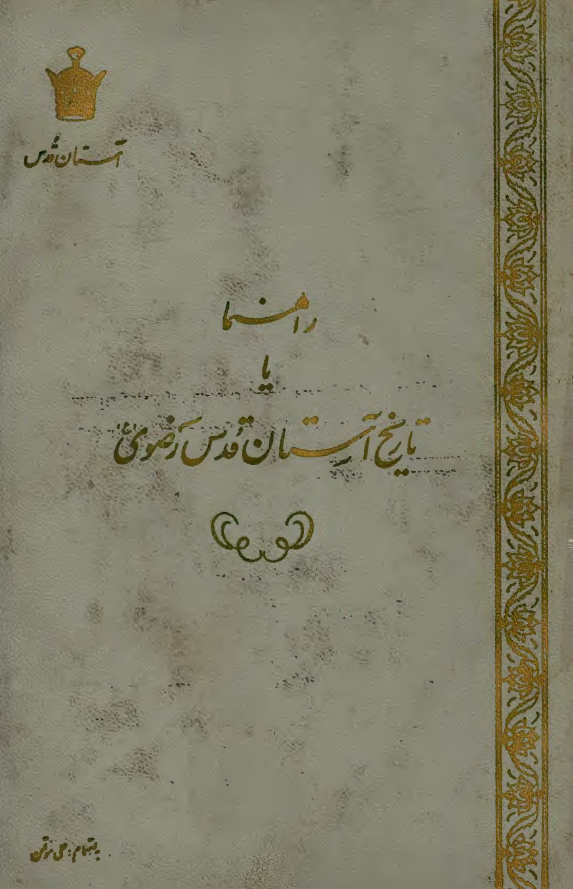 آستان قدس
راهنما
یا
تاریخ آستان قدس رضوی (ع)
به اهتمام: علی مؤتمن